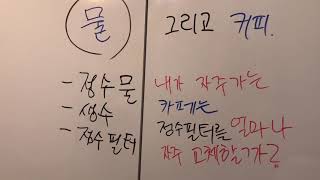 물
그리고 커피.
- 정수물
- 생수
- 정수필터
내가 자주가는
카페는
정수필터를 얼마나
자주 교체할까?